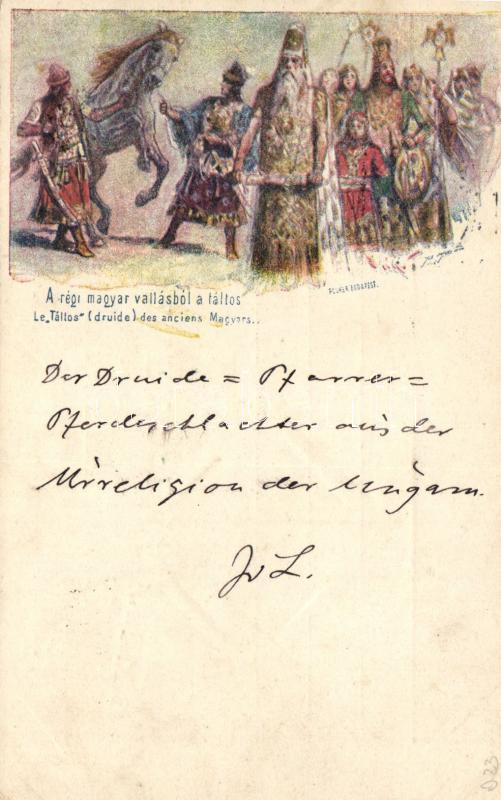 A régi magyar vallásból a táltos
Le „Táltos" (druide) des anciens Magyars..
Der Druide = Pfarrer =
Pferdeschlachter aus der
Urreligion der Ungarn.
JvL.